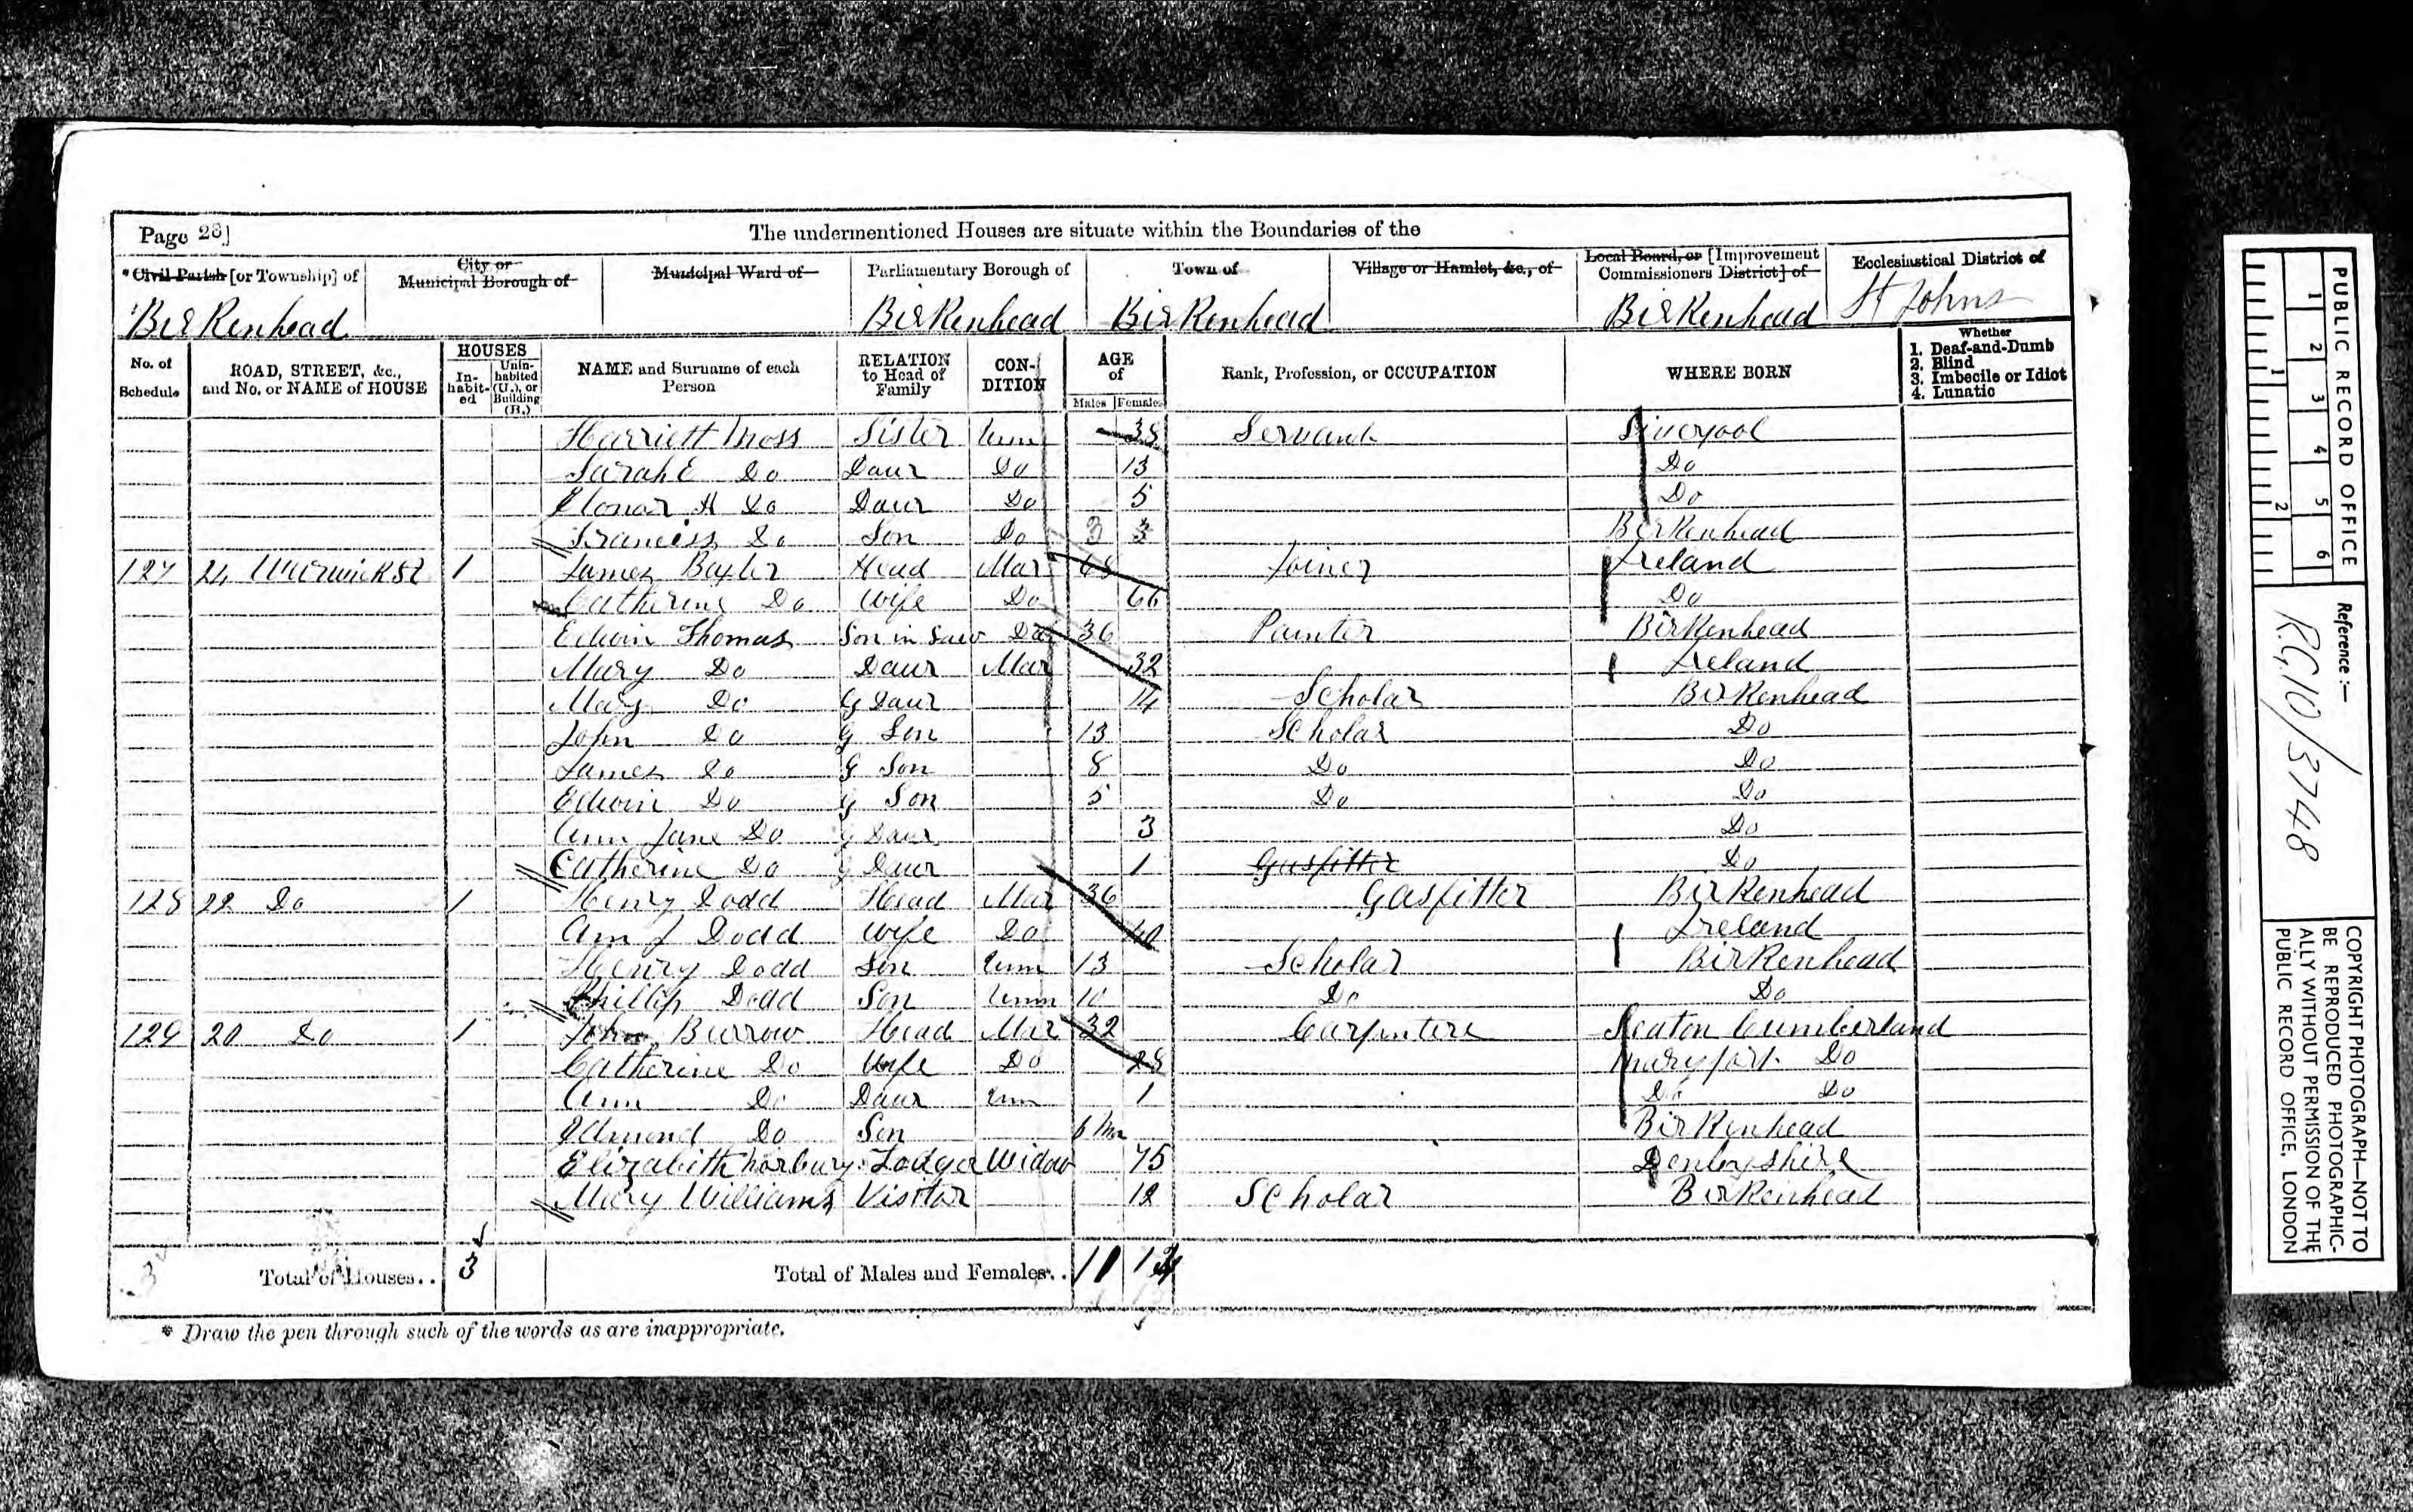 Page 23]
The undermentioned Houses are situate within the Boundaries of the
* Civil Parish [or Township] of
City or Municipal Borough of
Municipal Ward of
Parliamentary Borough of
Town of
Village or Hamlet, &c., of
Local Board, or [Improvement Commissioners District] of
Ecclesiastical District of
Birkenhead Birkenhead Birkenhead Birkenhead St Johns
No. of Schedule
ROAD, STREET, &c., and No. or NAME of HOUSE
HOUSES
Inhabited
Uninhabited (U.), or Building (B.)
NAME and Surname of each Person
RELATION to Head of Family
CONDITION
AGE of
Males Females
Rank, Profession, or OCCUPATION
WHERE BORN
Whether
1. Deaf-and-Dumb
2. Blind
3. Imbecile or Idiot
4. Lunatic
Harriett Moss Sister Unm 38 Servant Liverpool
Sarah E Do Daur Do 13 Do
Elonar H Do Daur Do 5 Do
Franciss Do Son Do 3 3 Birkenhead
127 24 St 1 James Baxter Head Mar 68 Joiner Ireland
Catherine Do Wife Do 66 Do
Edwin Thomas Son in Law Do 36 Painter Birkenhead
Mary Do Daur Mar 32 Ireland
Mary Do G Daur 14 Scholar Birkenhead
John Do G Son 13 Scholar Do
James Do G Son 8 Do Do
Edwin Do G Son 5 Do Do
Ann Jane Do G Daur 3 Do
Catherine Do G Daur 1 Gasfitter Do
128 22 Do 1 Henry Dodd Head Mar 36 Gasfitter Birkenhead
Ann J Dodd Wife Do 40 Ireland
Henry Dodd Son Unm 13 Scholar Birkenhead
Phillip Dodd Son Unm 10 Do Do
129 20 Do 1 John Burrow Head Mar 32 Carpentere Seaton Cumberland
Catherine Do Wife Do 28 Maryport Do
Ann Do Daur Unm 1 Do Do
Edmond Do Son 6 Mn Birkenhead
Elizabeth Lodger Widow 75 Denbyshire
Mary Williams Visitor 12 Scholar Birkenhead
3 Total of Houses.. 3 Total of Males and Females.. 11 13
* Draw the pen through such of the words as are inappropriate.
PUBLIC RECORD OFFICE
1 2 3 4 5 6
1 2
Reference :—
R.G.10/3748
COPYRIGHT PHOTOGRAPH—NOT TO
BE REPRODUCED PHOTOGRAPHIC-
ALLY WITHOUT PERMISSION OF THE
PUBLIC RECORD OFFICE, LONDON